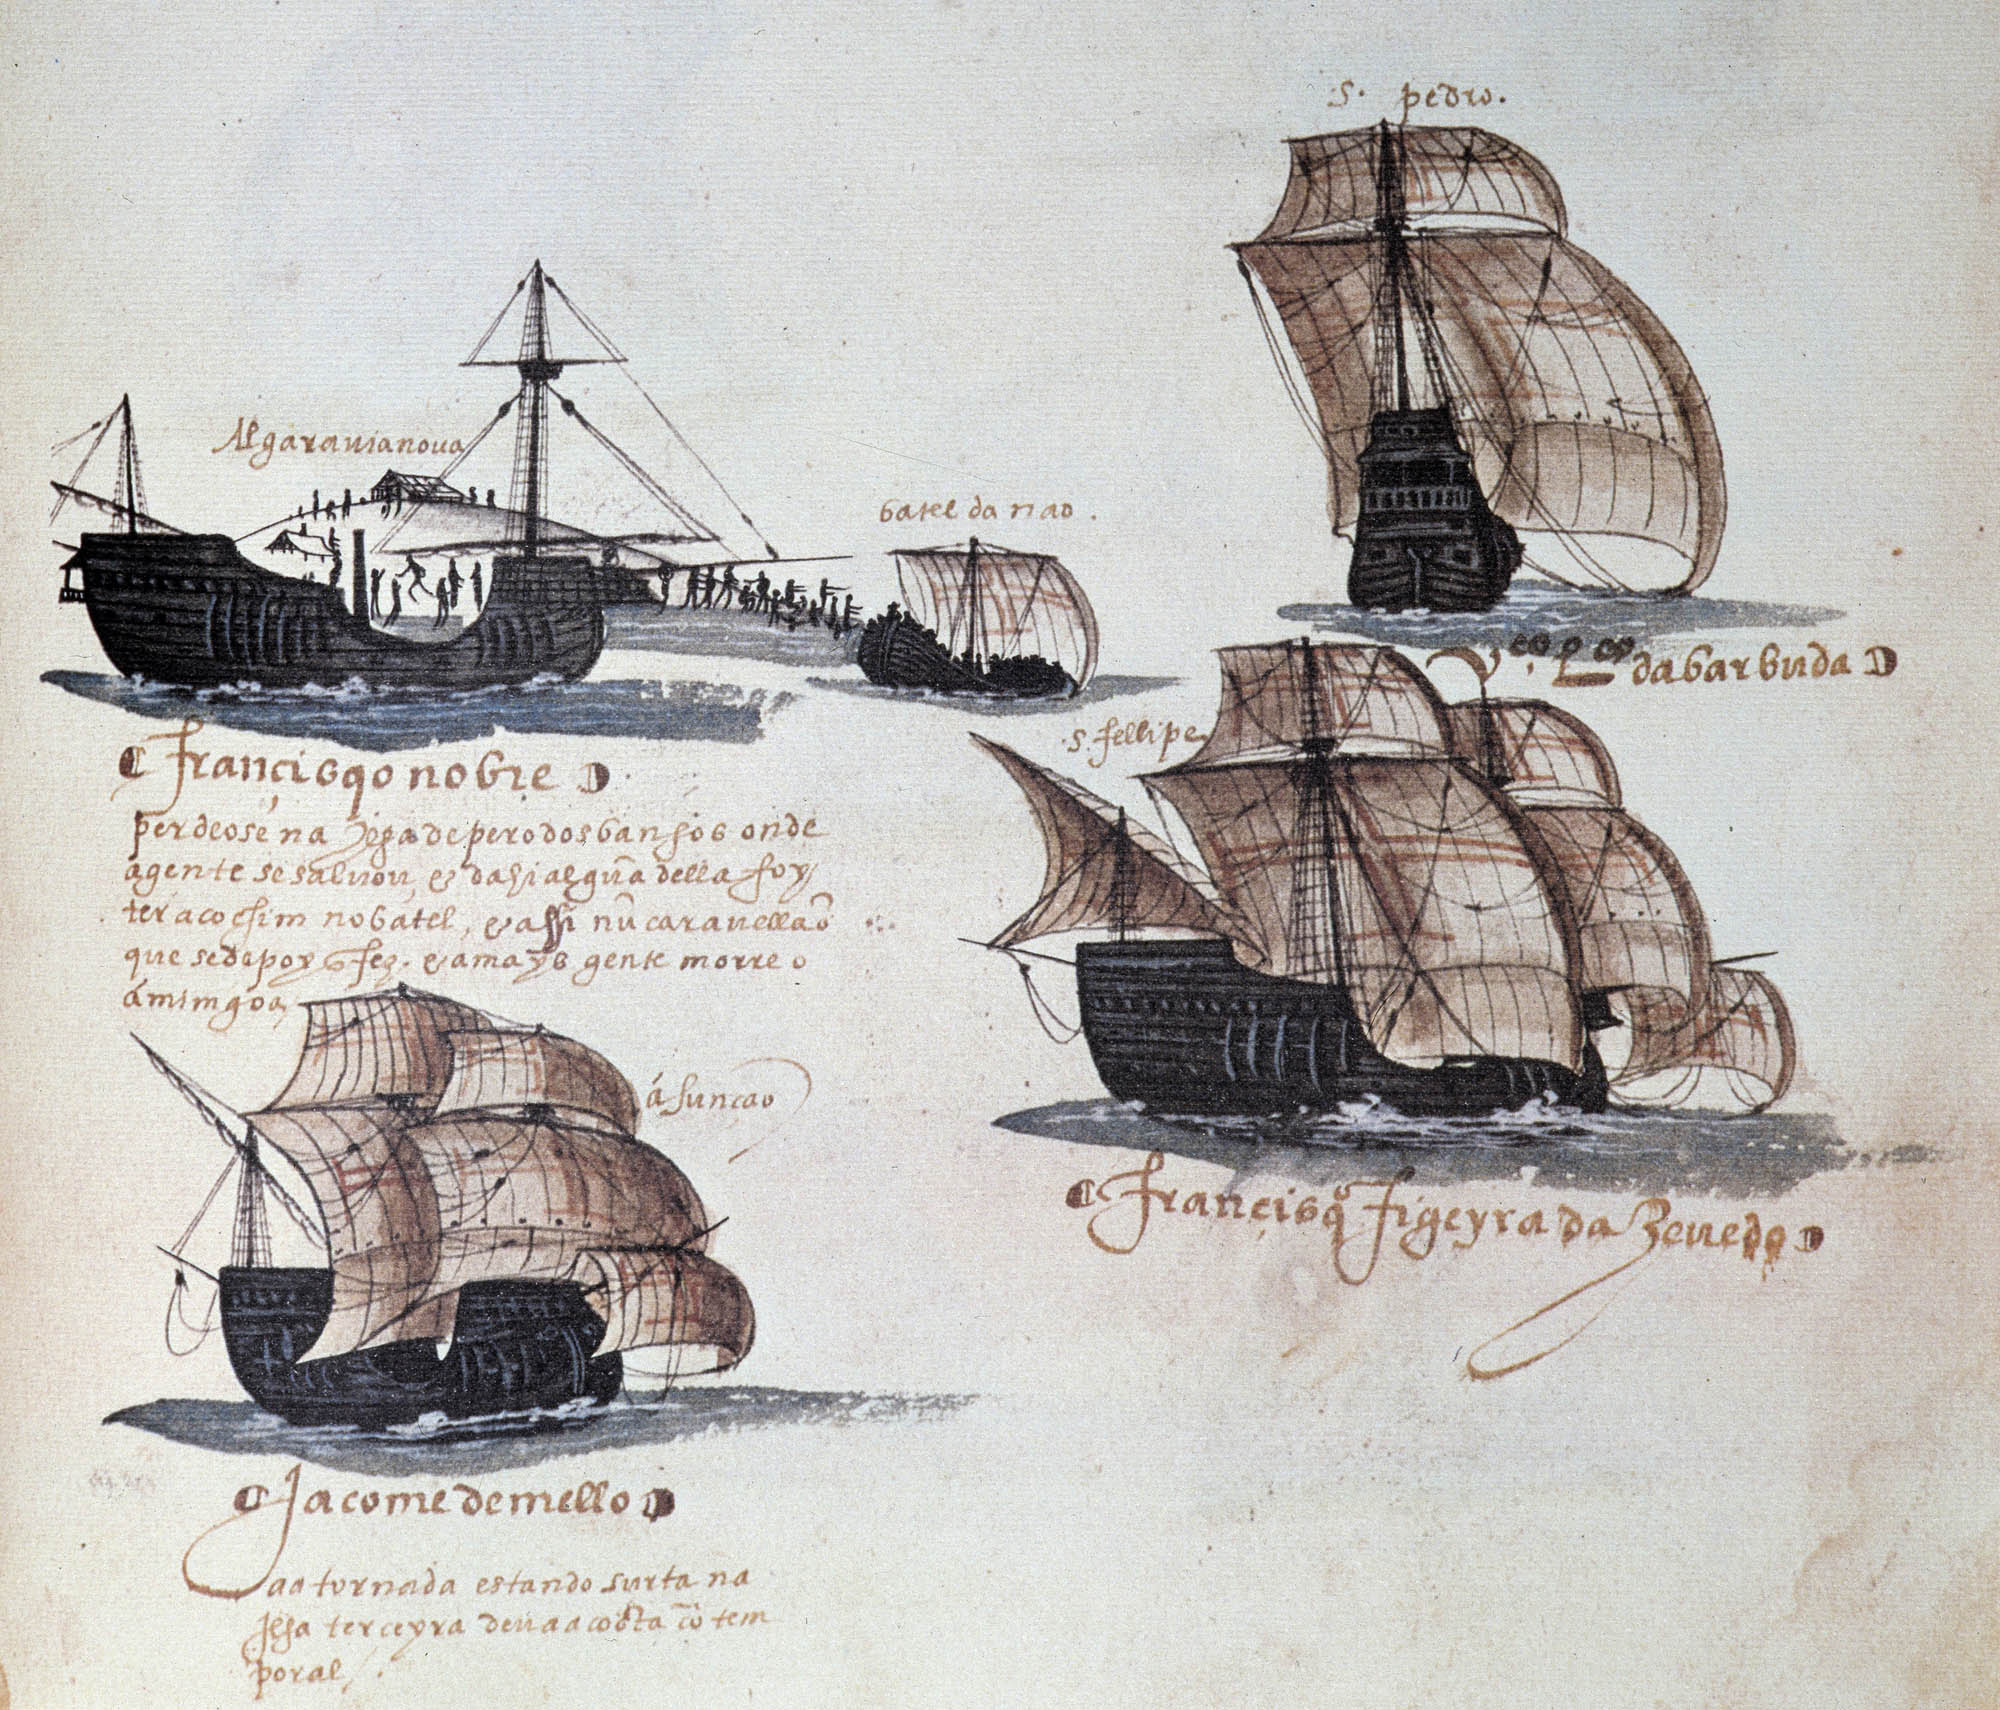 S. pedro.
Algaraviànova
batel da nao.
dabarbuda
Françisqo nobre
perdeose na Jlha de pero dos banhos onde
a gente se salvou, & dahi algũa della foy
ter a cochim no batel, & assi nũ caravellaõ
que se depoys fez. & a mays gente morreo
á mimgoa,
s. fellipe.
á sunçao
Françisqº figeyra da Zevedo
Jacome de mello
aa tornada estando surta na
Jlha terceyra deu aa costa cõ tem
poral,